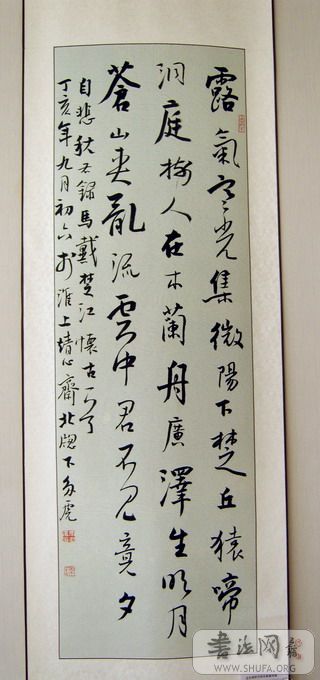 露氣寒光集微陽下楚丘猿啼
洞庭樹人在木蘭舟廣澤生明月
蒼山夾亂流雲中君不見竟夕
自悲秋右錄馬戴楚江懷古一首
丁亥年九月初六於淮上靖心齋北窗下
書法网
WWW.SHUFA.ORG